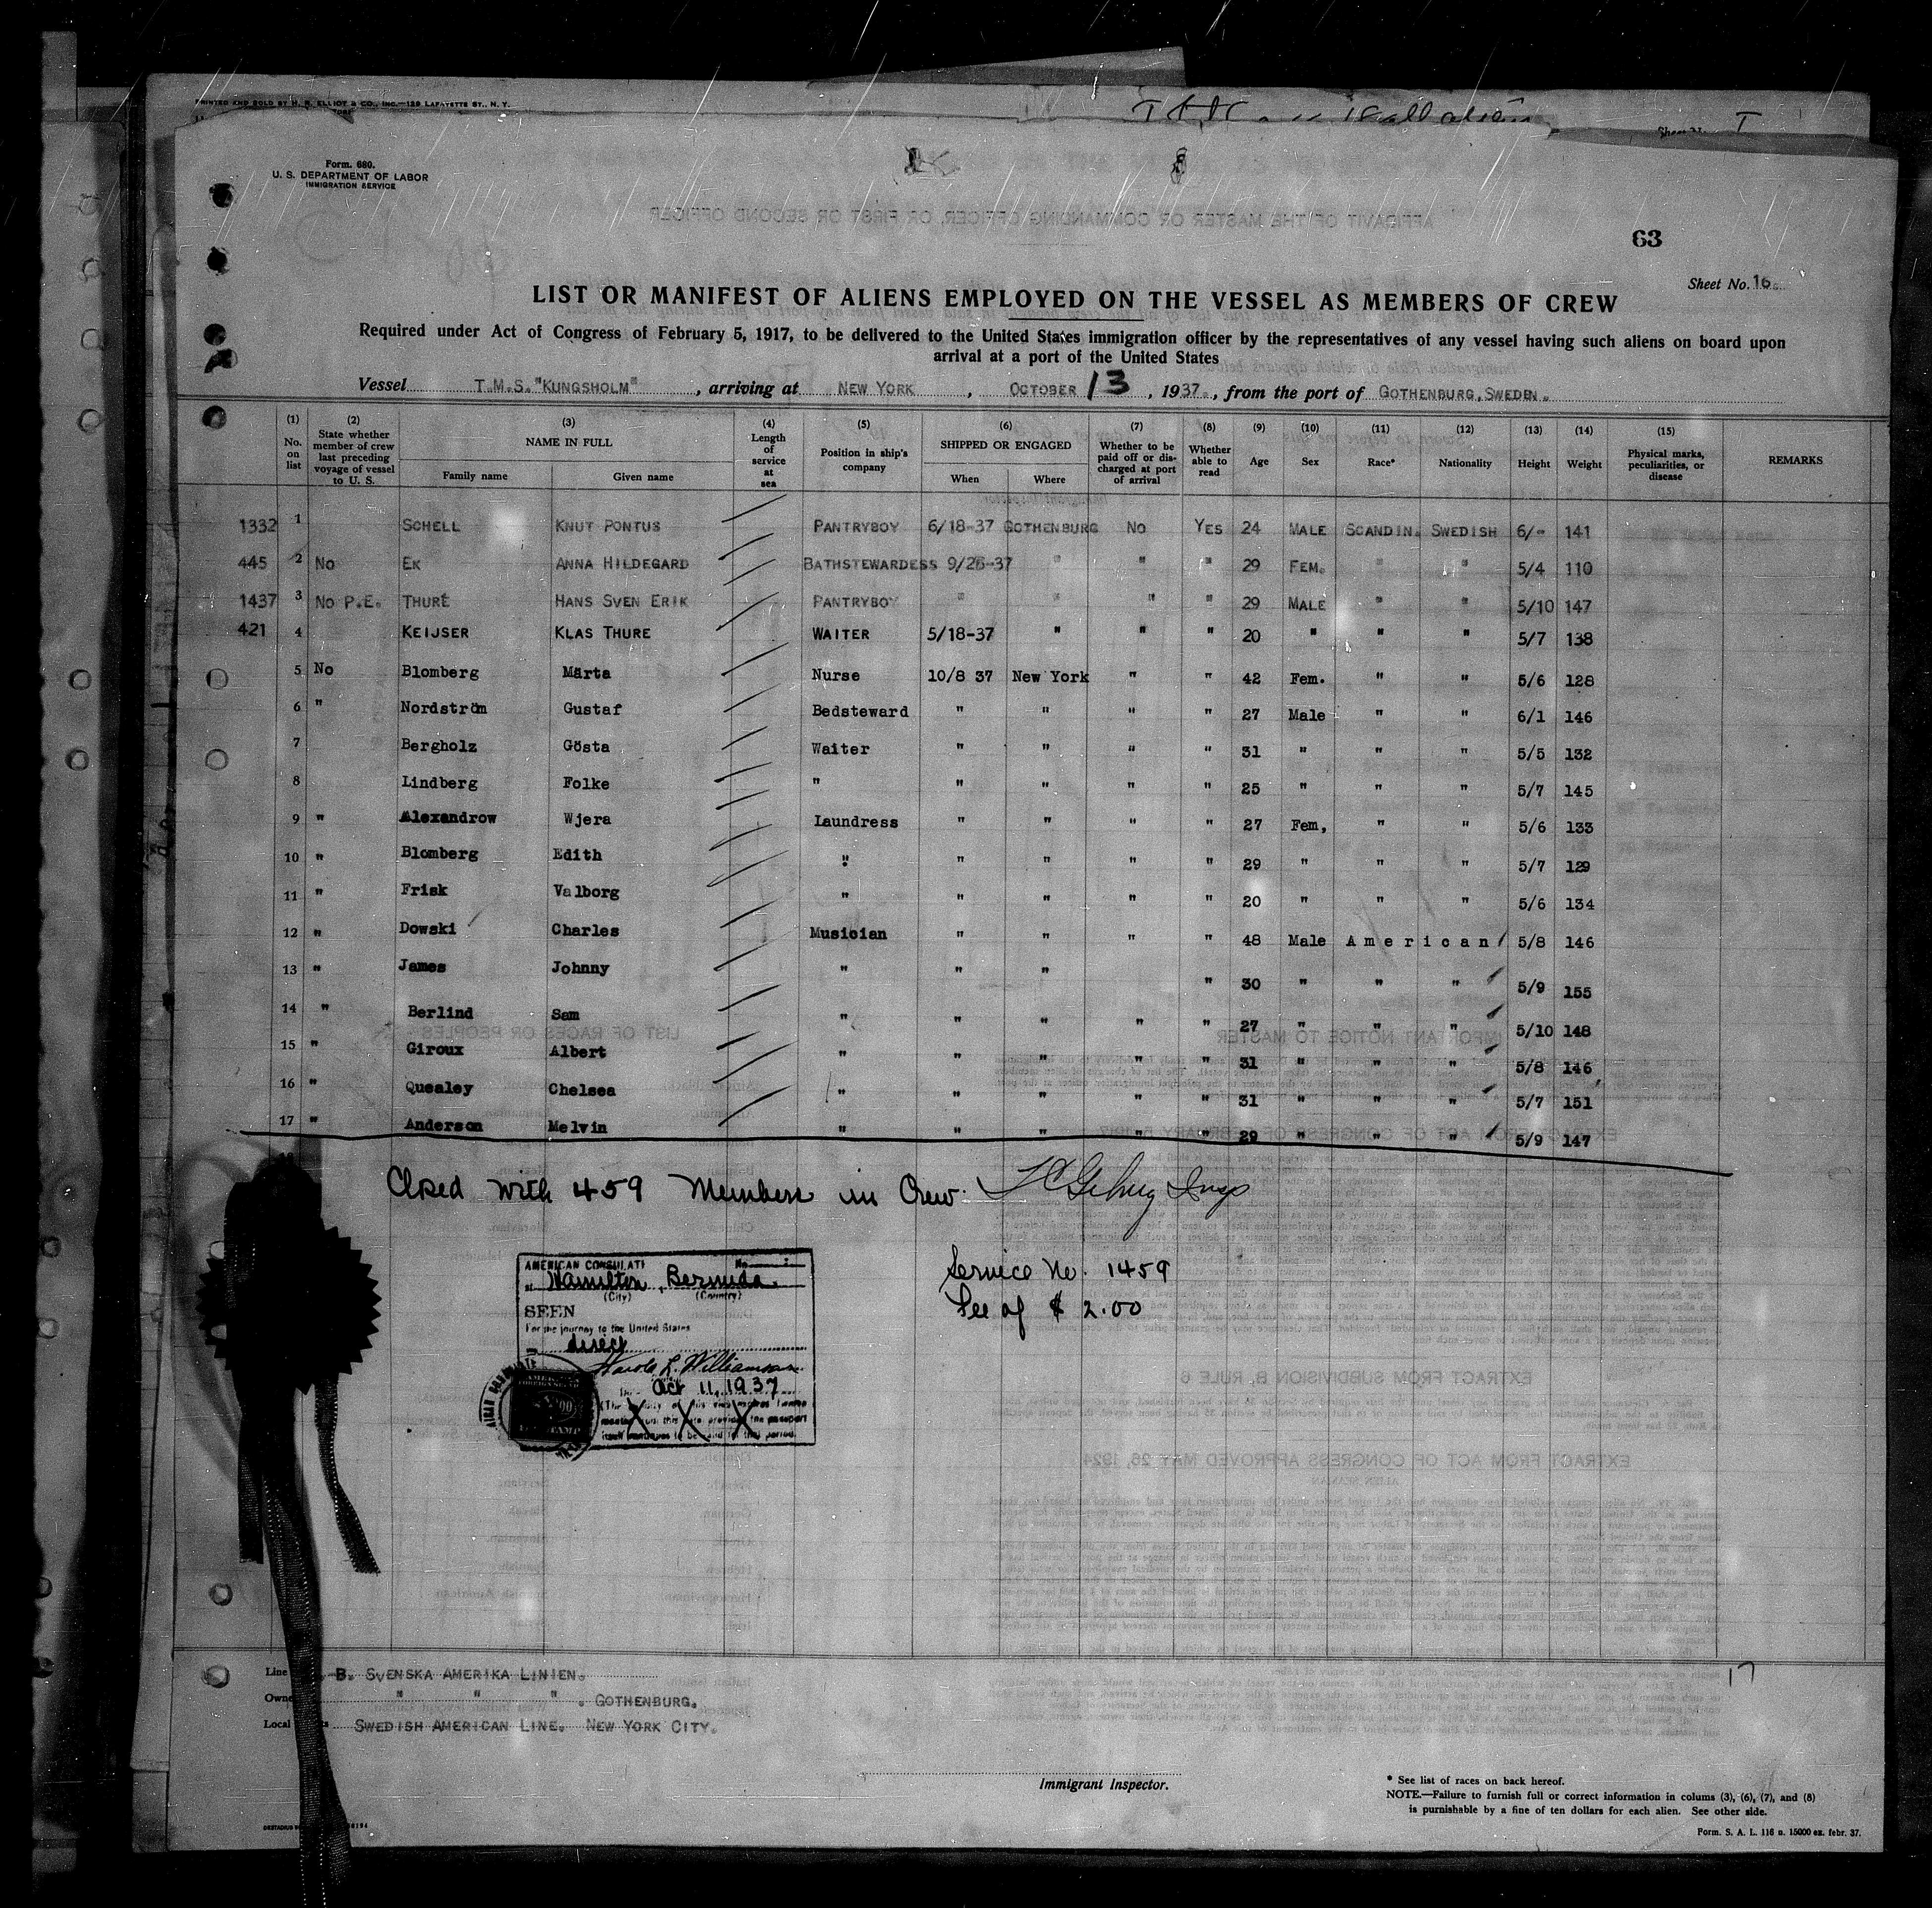 PRINTED AND SOLD BY H. R. ELLIOT & CO., INC.—129 LAFAYETTE ST., N. Y.
Form. 680.
U. S. DEPARTMENT OF LABOR
IMMIGRATION SERVICE
63
Sheet No. 16
LIST OR MANIFEST OF ALIENS EMPLOYED ON THE VESSEL AS MEMBERS OF CREW
Required under Act of Congress of February 5, 1917, to be delivered to the United States immigration officer by the representatives of any vessel having such aliens on board upon
arrival at a port of the United States
Vessel T.M.S. "KUNGSHOLM", arriving at NEW YORK, OCTOBER 13, 1937., from the port of GOTHENBURG, SWEDEN.
(1) No. on list (2) State whether member of crew last preceding voyage of vessel to U. S. (3) NAME IN FULL Family name Given name (4) Length of service at sea (5) Position in ship's company (6) SHIPPED OR ENGAGED When Where (7) Whether to be paid off or discharged at port of arrival (8) Whether able to read (9) Age (10) Sex (11) Race* (12) Nationality (13) Height (14) Weight (15) Physical marks, peculiarities, or disease REMARKS
1332 1 SCHELL KNUT PONTUS PANTRYBOY 6/18-37 GOTHENBURG NO YES 24 MALE SCANDIN. SWEDISH 6/- 141
445 2 NO EK ANNA HILDEGARD BATHSTEWARDESS 9/25-37 " " " 29 FEM. " " 5/4 110
1437 3 NO P.E. THURE HANS SVEN ERIK PANTRYBOY " " " " 29 MALE " " 5/10 147
421 4 KEIJSER KLAS THURE WAITER 5/18-37 " " " 20 " " " 5/7 138
5 No Blomberg Märta Nurse 10/8 37 New York " " 42 Fem. " " 5/6 128
6 " Nordström Gustaf Bedsteward " " " " 27 Male " " 6/1 146
7 Bergholz Gösta Waiter " " " " 31 " " " 5/5 132
8 Lindberg Folke " " " " " 25 " " " 5/7 145
9 " Alexandrow Wjera Laundress " " " " 27 Fem, " " 5/6 133
10 " Blomberg Edith " " " " " 29 " " " 5/7 129
11 " Frisk Valborg " " " " " 20 " " " 5/6 134
12 " Dowski Charles Musician " " " " 48 Male American 5/8 146
13 " James Johnny " " " " 30 " " " 5/9 155
14 " Berlind Sam " " " " " 27 " " " 5/10 148
15 " Giroux Albert " " " " " 31 " " " 5/8 146
16 " Quealey Chelsea " " " " " 31 " " " 5/7 151
17 " Anderson Melvin " " " " " 29 " " " 5/9 147
Closed with 459 Members in Crew.
Service No. 1459
Fee of $ 2.00
AMERICAN CONSULATE No.
at Hamilton, Bermuda.
(City) (Country)
SEEN
For the journey to the United States
direct
Harold L. Williamson
Oct 11, 1937
Line B. SVENSKA AMERIKA LINIEN.
Owne " " ". GOTHENBURG.
Local SWEDISH AMERICAN LINE. NEW YORK CITY.
17
Immigrant Inspector.
* See list of races on back hereof.
NOTE.—Failure to furnish full or correct information in colums (3), (6), (7), and (8)
is purnishable by a fine of ten dollars for each alien. See other side.
Form. S. A. L. 116 u. 15000 ex. febr. 37.